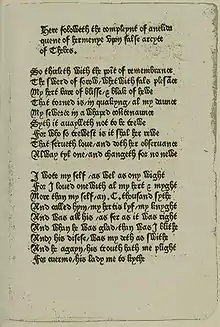 Here foloweth the compleynt of anelida
quene of hermenye upon false arcyte
of Thebes.
So thirleth with the poit of remembrance
The sword of sorow, whet with fals plesace
My hert bare of blisse, & blak of hewe
That torned is, in quakyng, al my daunce
My sewerte in a whaped contenaunce
Syth it auayleth not to be trewe
For who so trewest is it shal her rewe
That serueth loue, and doth her obseruance
Alway tyl one, and changeth for no newe
I wote my self, as wel as ony wight
For I loued one with al my hert & myght
More than my self, an, C, thousand sythe
And called hym, my hertis lyf, my knyght
And was all his, as fer as it was right
And whan he was glad, than was I blithe
And his disese, was my deth as swithe
And he agayn, his trouth hath me plight
For euermo, his lady me to kythe